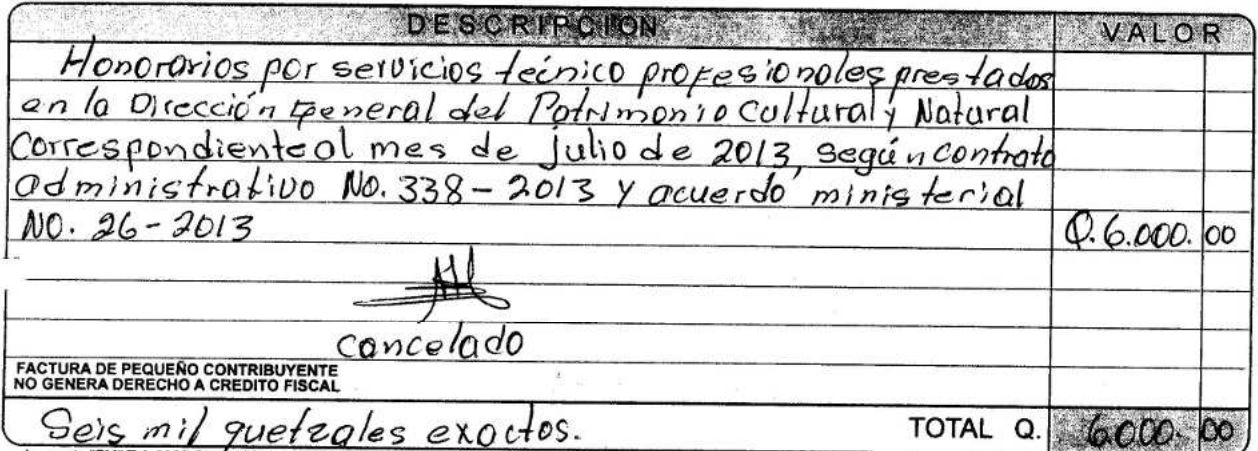 DESCRIPCION VALOR
Honorarios por servicios técnico profesionales prestados
en la Dirección General del Patrimonio Cultural y Natural
Correspondiente al mes de julio de 2013, según contrato
administrativo No. 338-2013 y acuerdo ministerial
NO. 26-2013 Q.6.000.00
cancelado
FACTURA DE PEQUEÑO CONTRIBUYENTE
NO GENERA DERECHO A CREDITO FISCAL
Seis mil quetzales exactos. TOTAL Q. 6.000.00